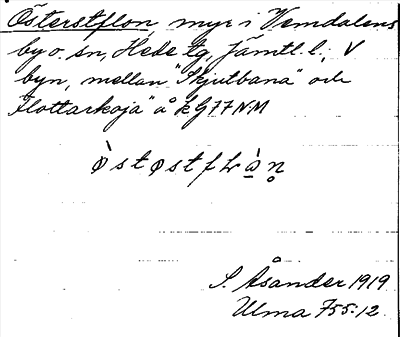 Österstflon, myr i Vemdalens
by o. sn, Hede tg, Jämtl. l., V
byn, mellan "Skjutbana" och
"Flottarkoja" å k G77 NM
S. Åsander 1919
Ulma 755:12.